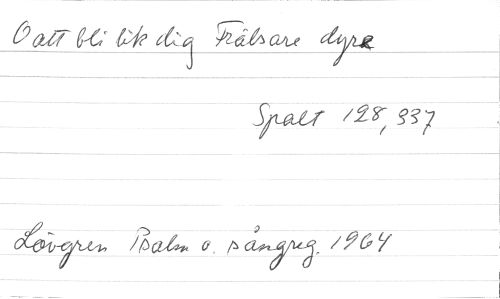 O att bli lik dig Frälsare dyre
Spalt 128, 337
Lövgren Psalm o. sångreg. 1964